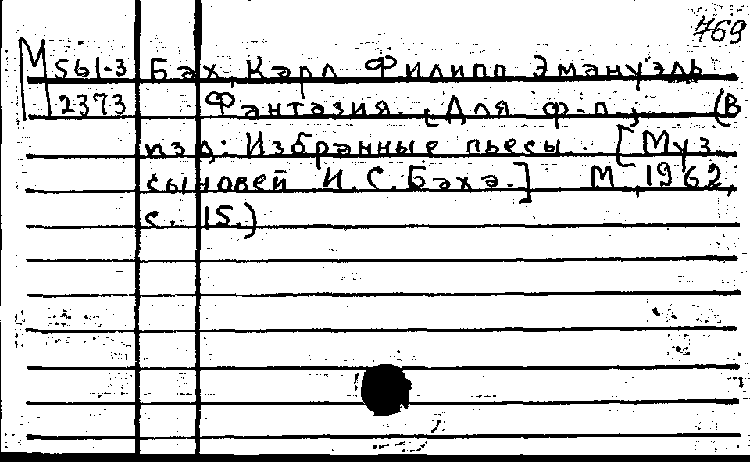 469
М 561-3 Бах, Карл Филипп Эмануэль
2373 Фантазия. [Для ф-п.] (В
изд: Избранные пьесы. [Муз.
сыновей И.С.Баха.] М., 1962,
с. 15.)